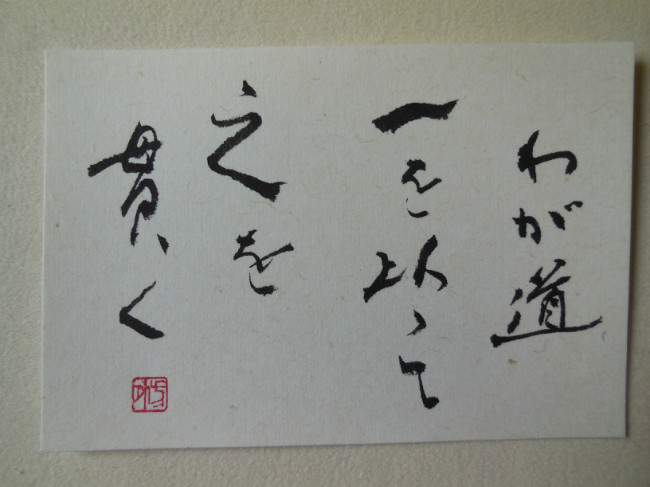 わが道
一を以って
之を
貫く